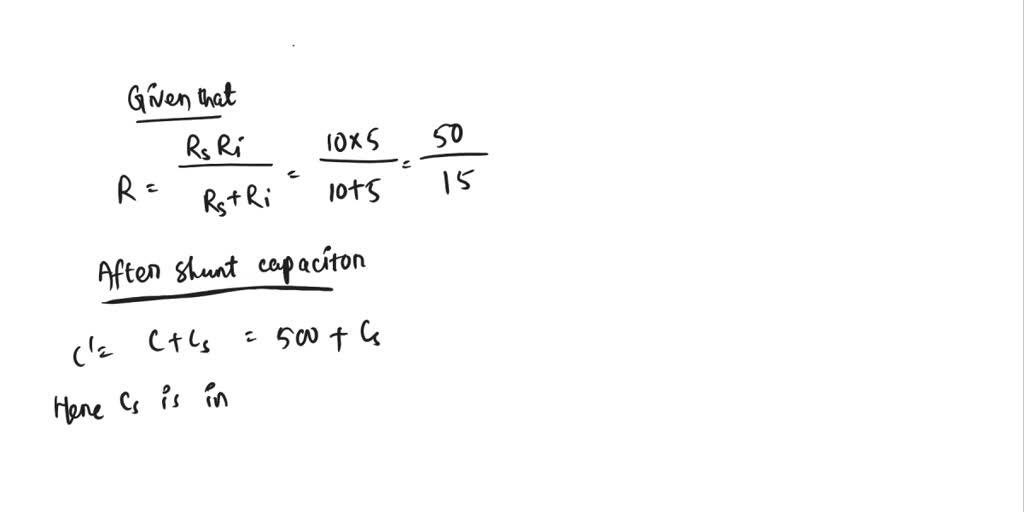 Given that
R = Rs Ri / Rs+Ri = 10×5 / 10+5 = 50 / 15
After shunt capacitor
C' = C+Cs = 500 + Cs
Here Cs is in